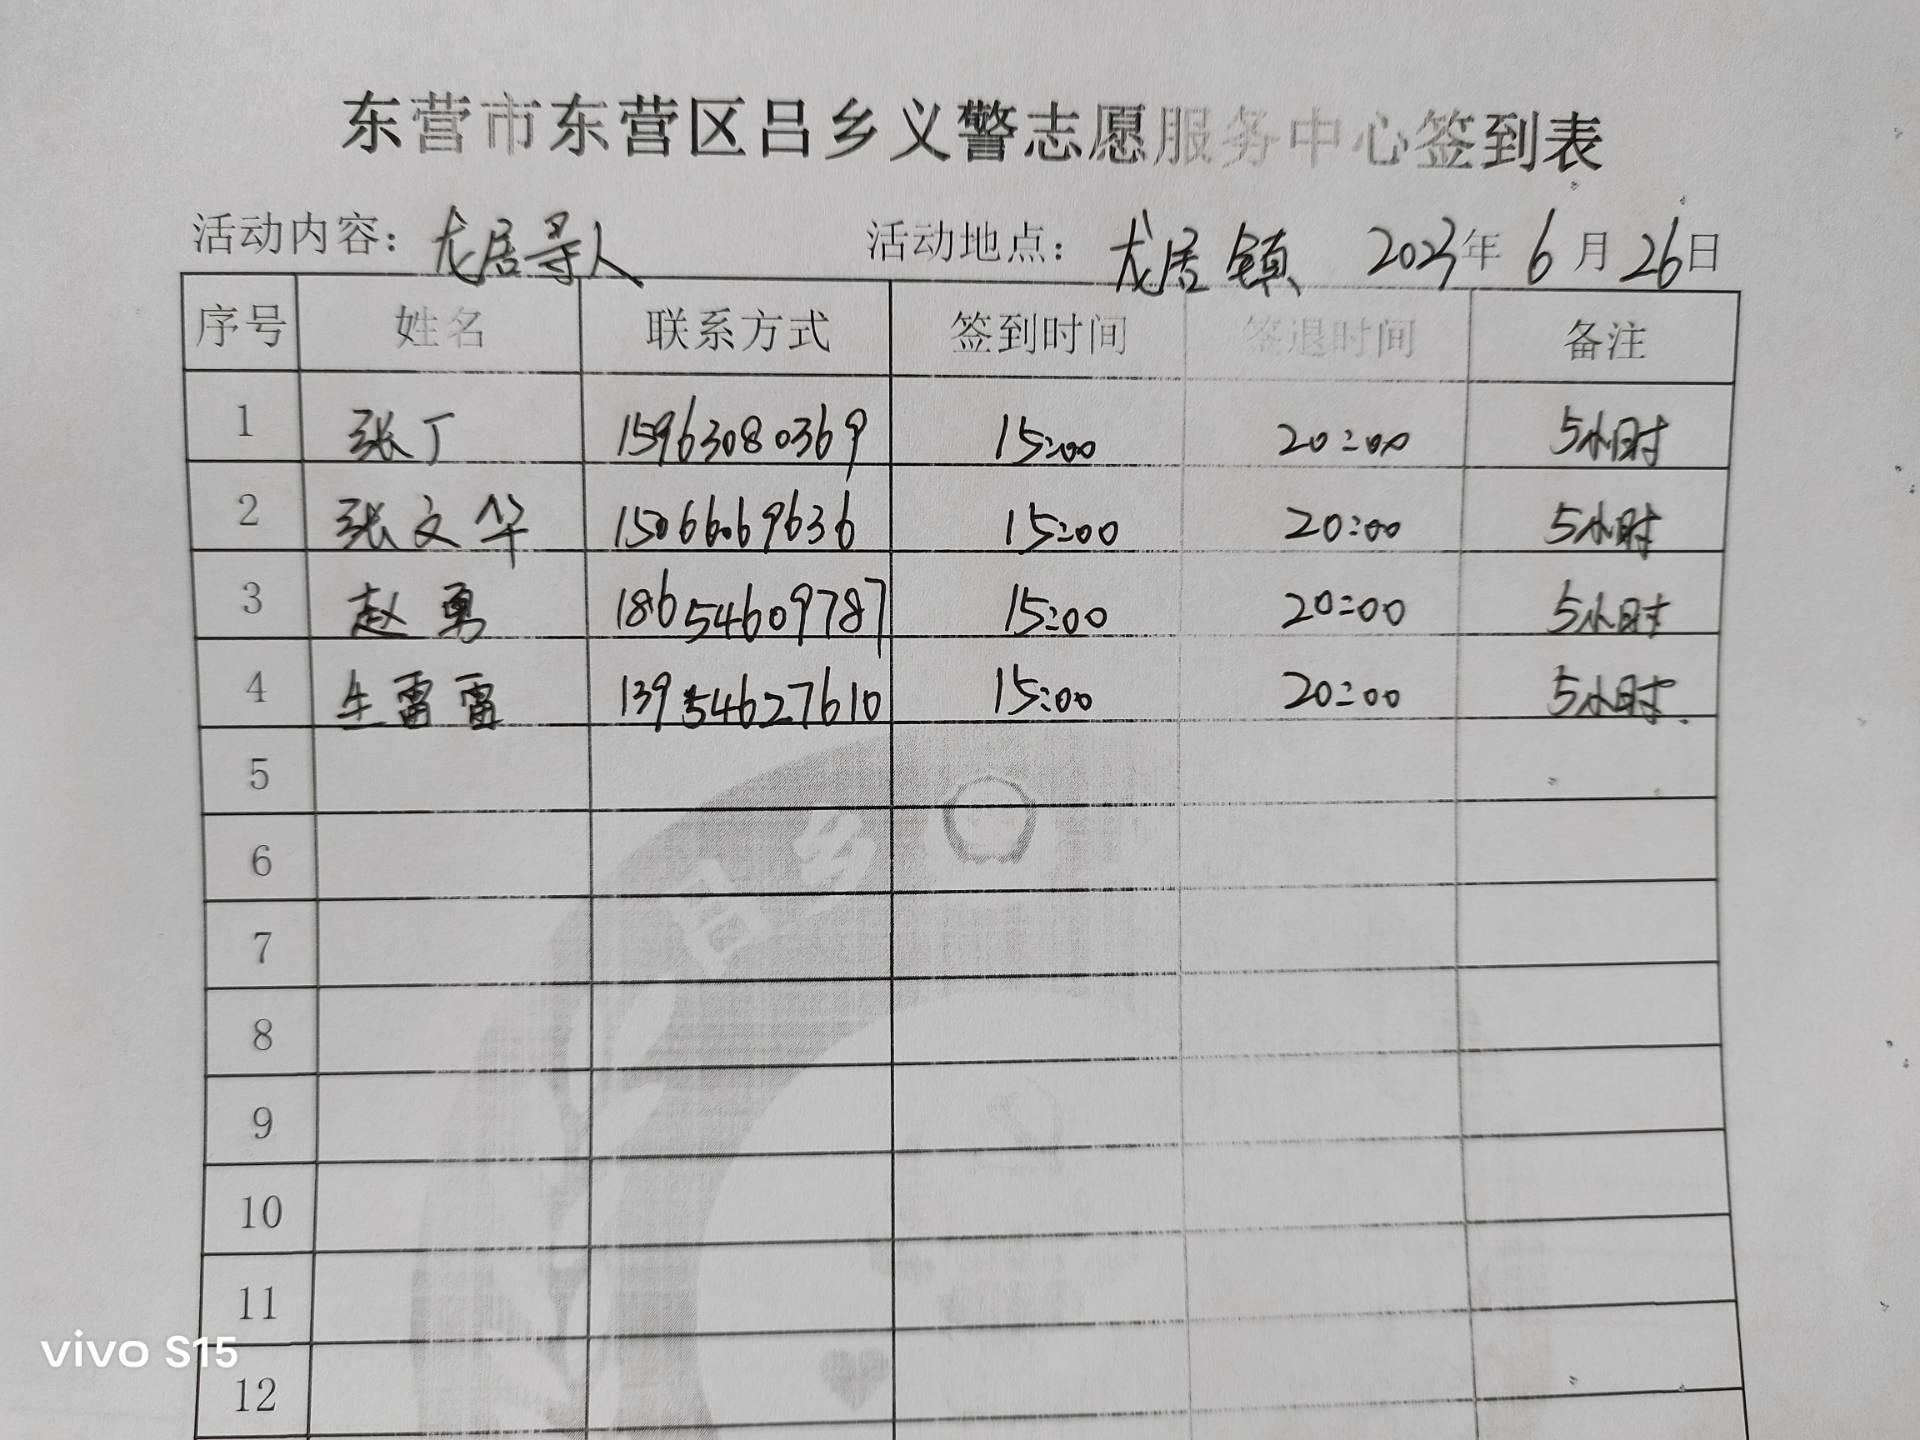 东营市东营区吕乡义警志愿服务中心签到表
活动内容：龙居寻人 活动地点：龙居镇 2023年6月26日
序号 姓名 联系方式 签到时间 签退时间 备注
1 张丁 15963080369 15:00 20:00 5小时
2 张文华 15066069636 15:00 20:00 5小时
3 赵勇 18654609787 15:00 20:00 5小时
4 生雷雷 13954627610 15:00 20:00 5小时.
5
6
7
8
9
10
11
12
吕乡
vivo S15